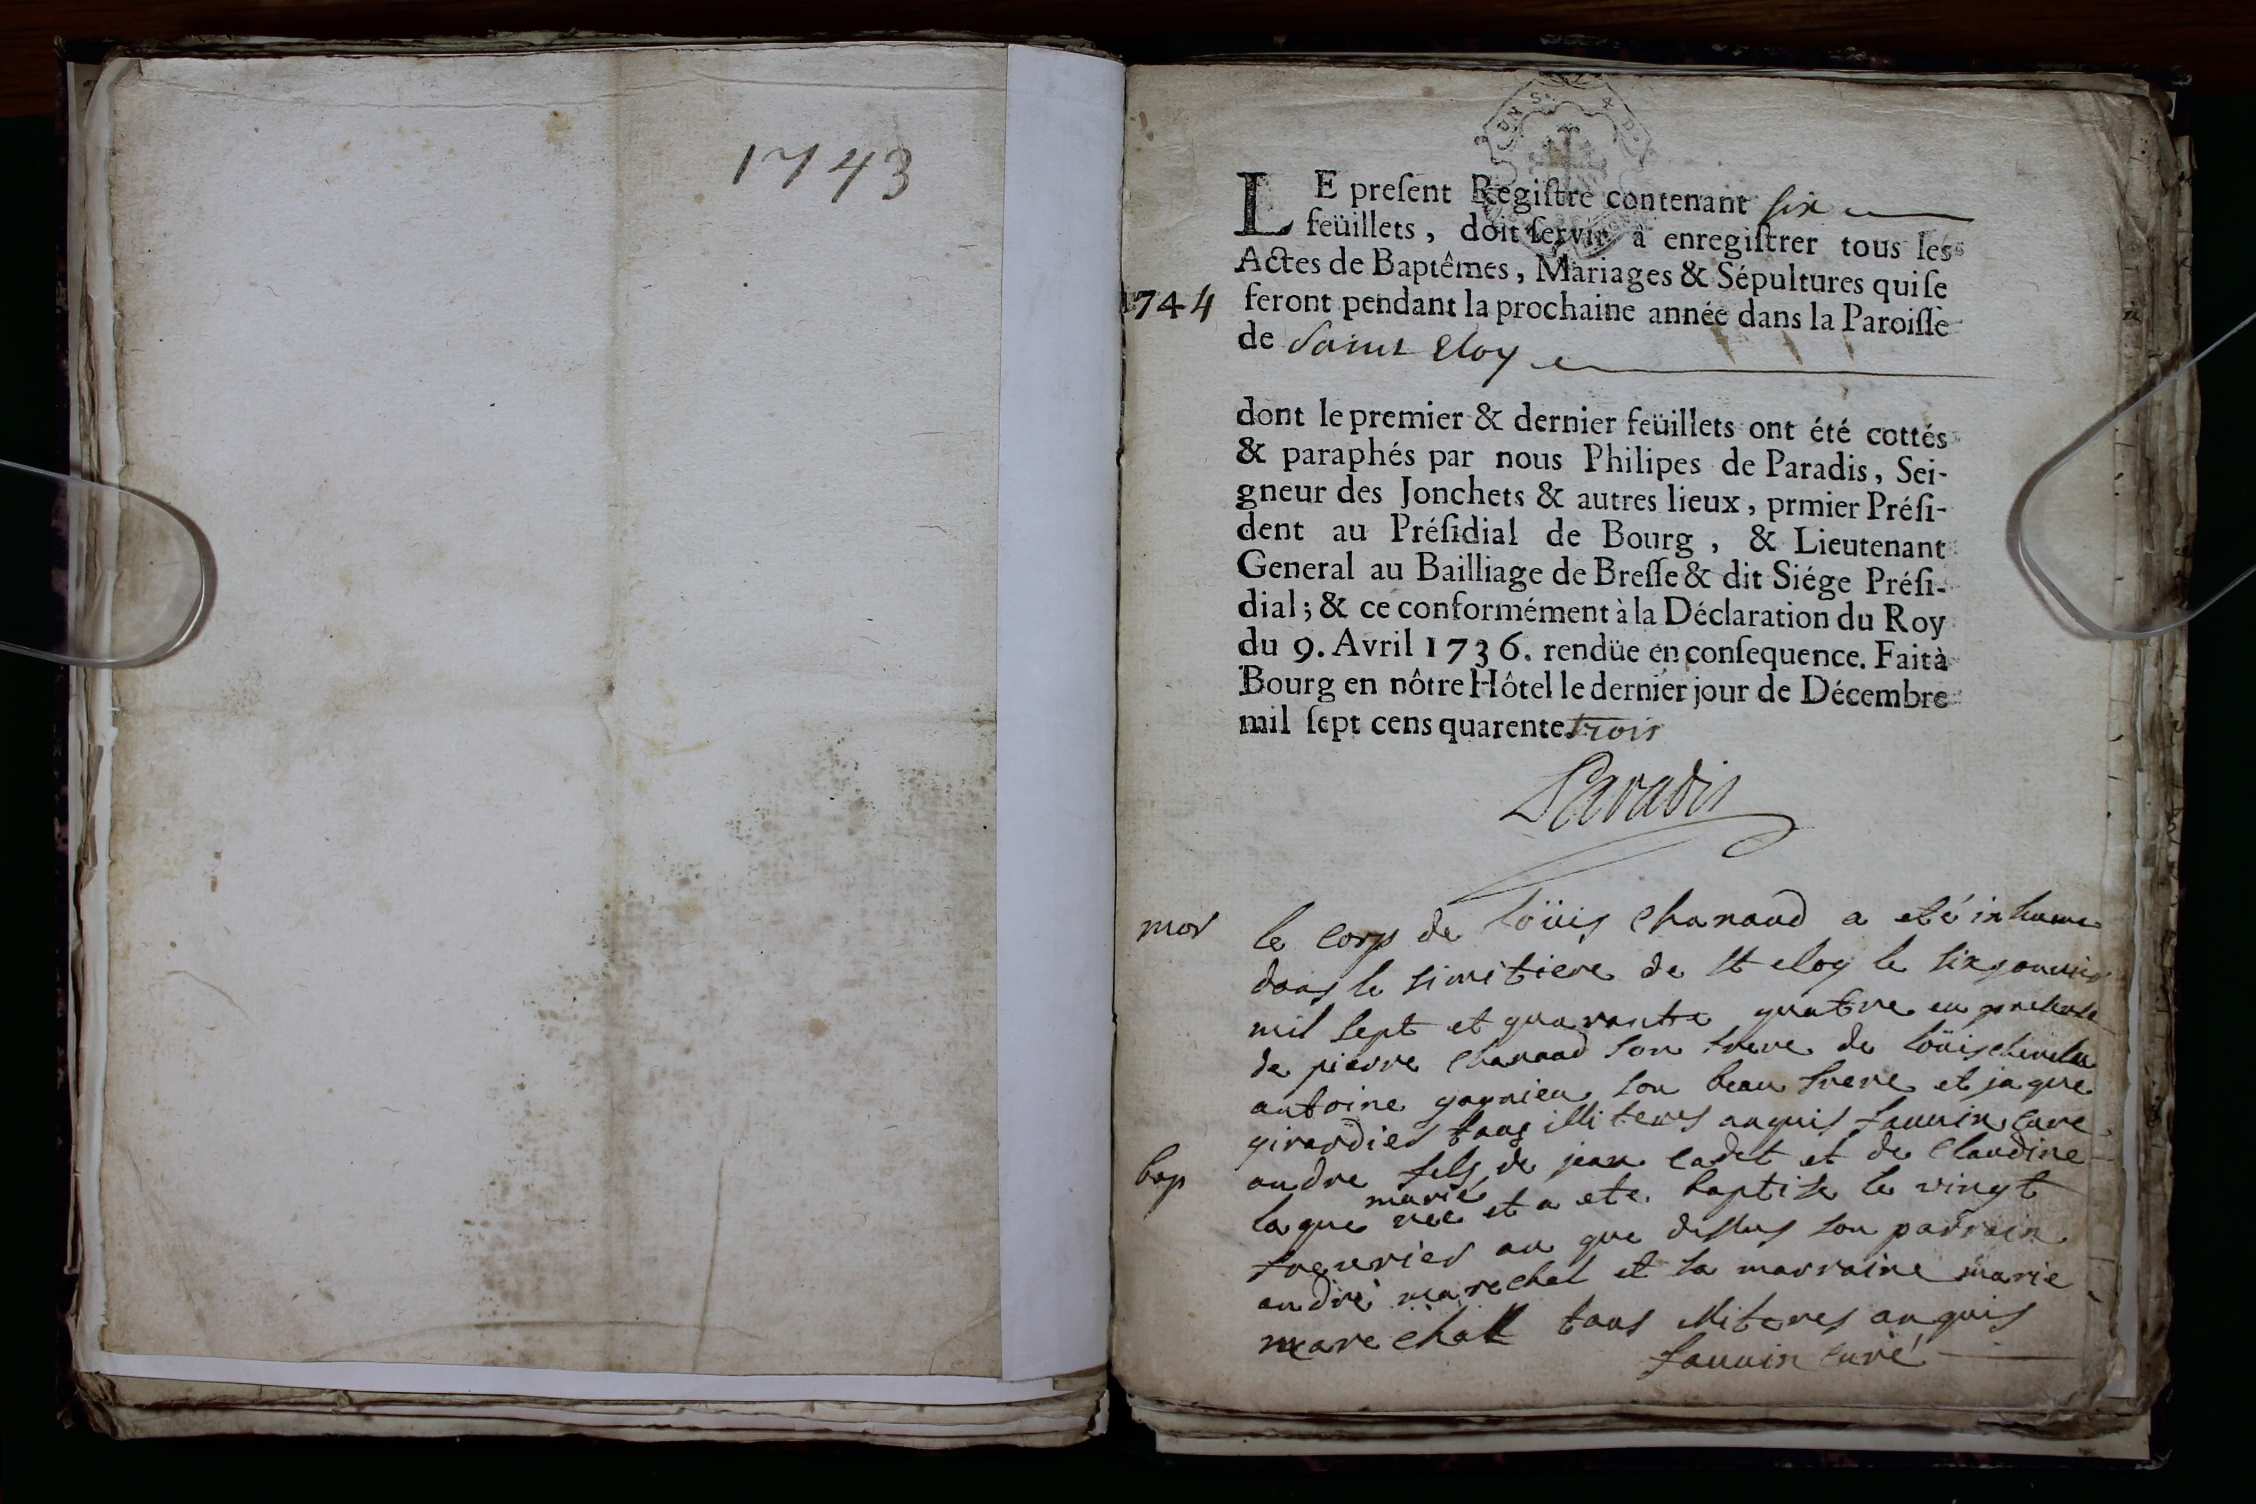 1743
LE preſent Regiſtre contenant six
feüillets, doit ſervir à enregiſtrer tous les
Actes de Baptêmes, Mariages & Sépultures qui ſe
1744 feront pendant la prochaine année dans la Paroiſſe
de Saint Eloy
dont le premier & dernier feüillets ont été cottés
& paraphés par nous Philipes de Paradis, Sei-
gneur des Jonchets & autres lieux, prmier Préſi-
dent au Préſidial de Bourg, & Lieutenant
General au Bailliage de Breſſe & dit Siége Préſi-
dial; & ce conformément à la Déclaration du Roy
du 9. Avril 1736. rendüe en conſequence. Fait à
Bourg en nôtre Hôtel le dernier jour de Décembre
mil ſept cens quarente trois
Paradis
mor le corps de loüis chanaud a eté inhume
dans le simitiere de st eloy le six janvier
mil sept et quarante quatre en presence
de pierre chanaud son frere de loüis
antoine gagnieu son beau frere et jaque
girardier tous illiteres anquis fauuin cure
bap andre fils de jean cadet et de claudine
laque marié nee et a ete baptise le vingt
feuvrier au que dessus son parrain
andré marechal et sa marraine marie
marechall tous illiteres anquis
fauuin curé